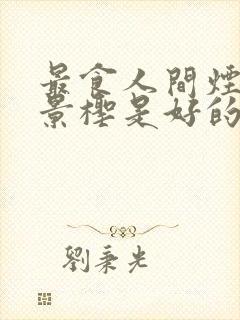 最食人間煙
景櫁是好的
劉秉光